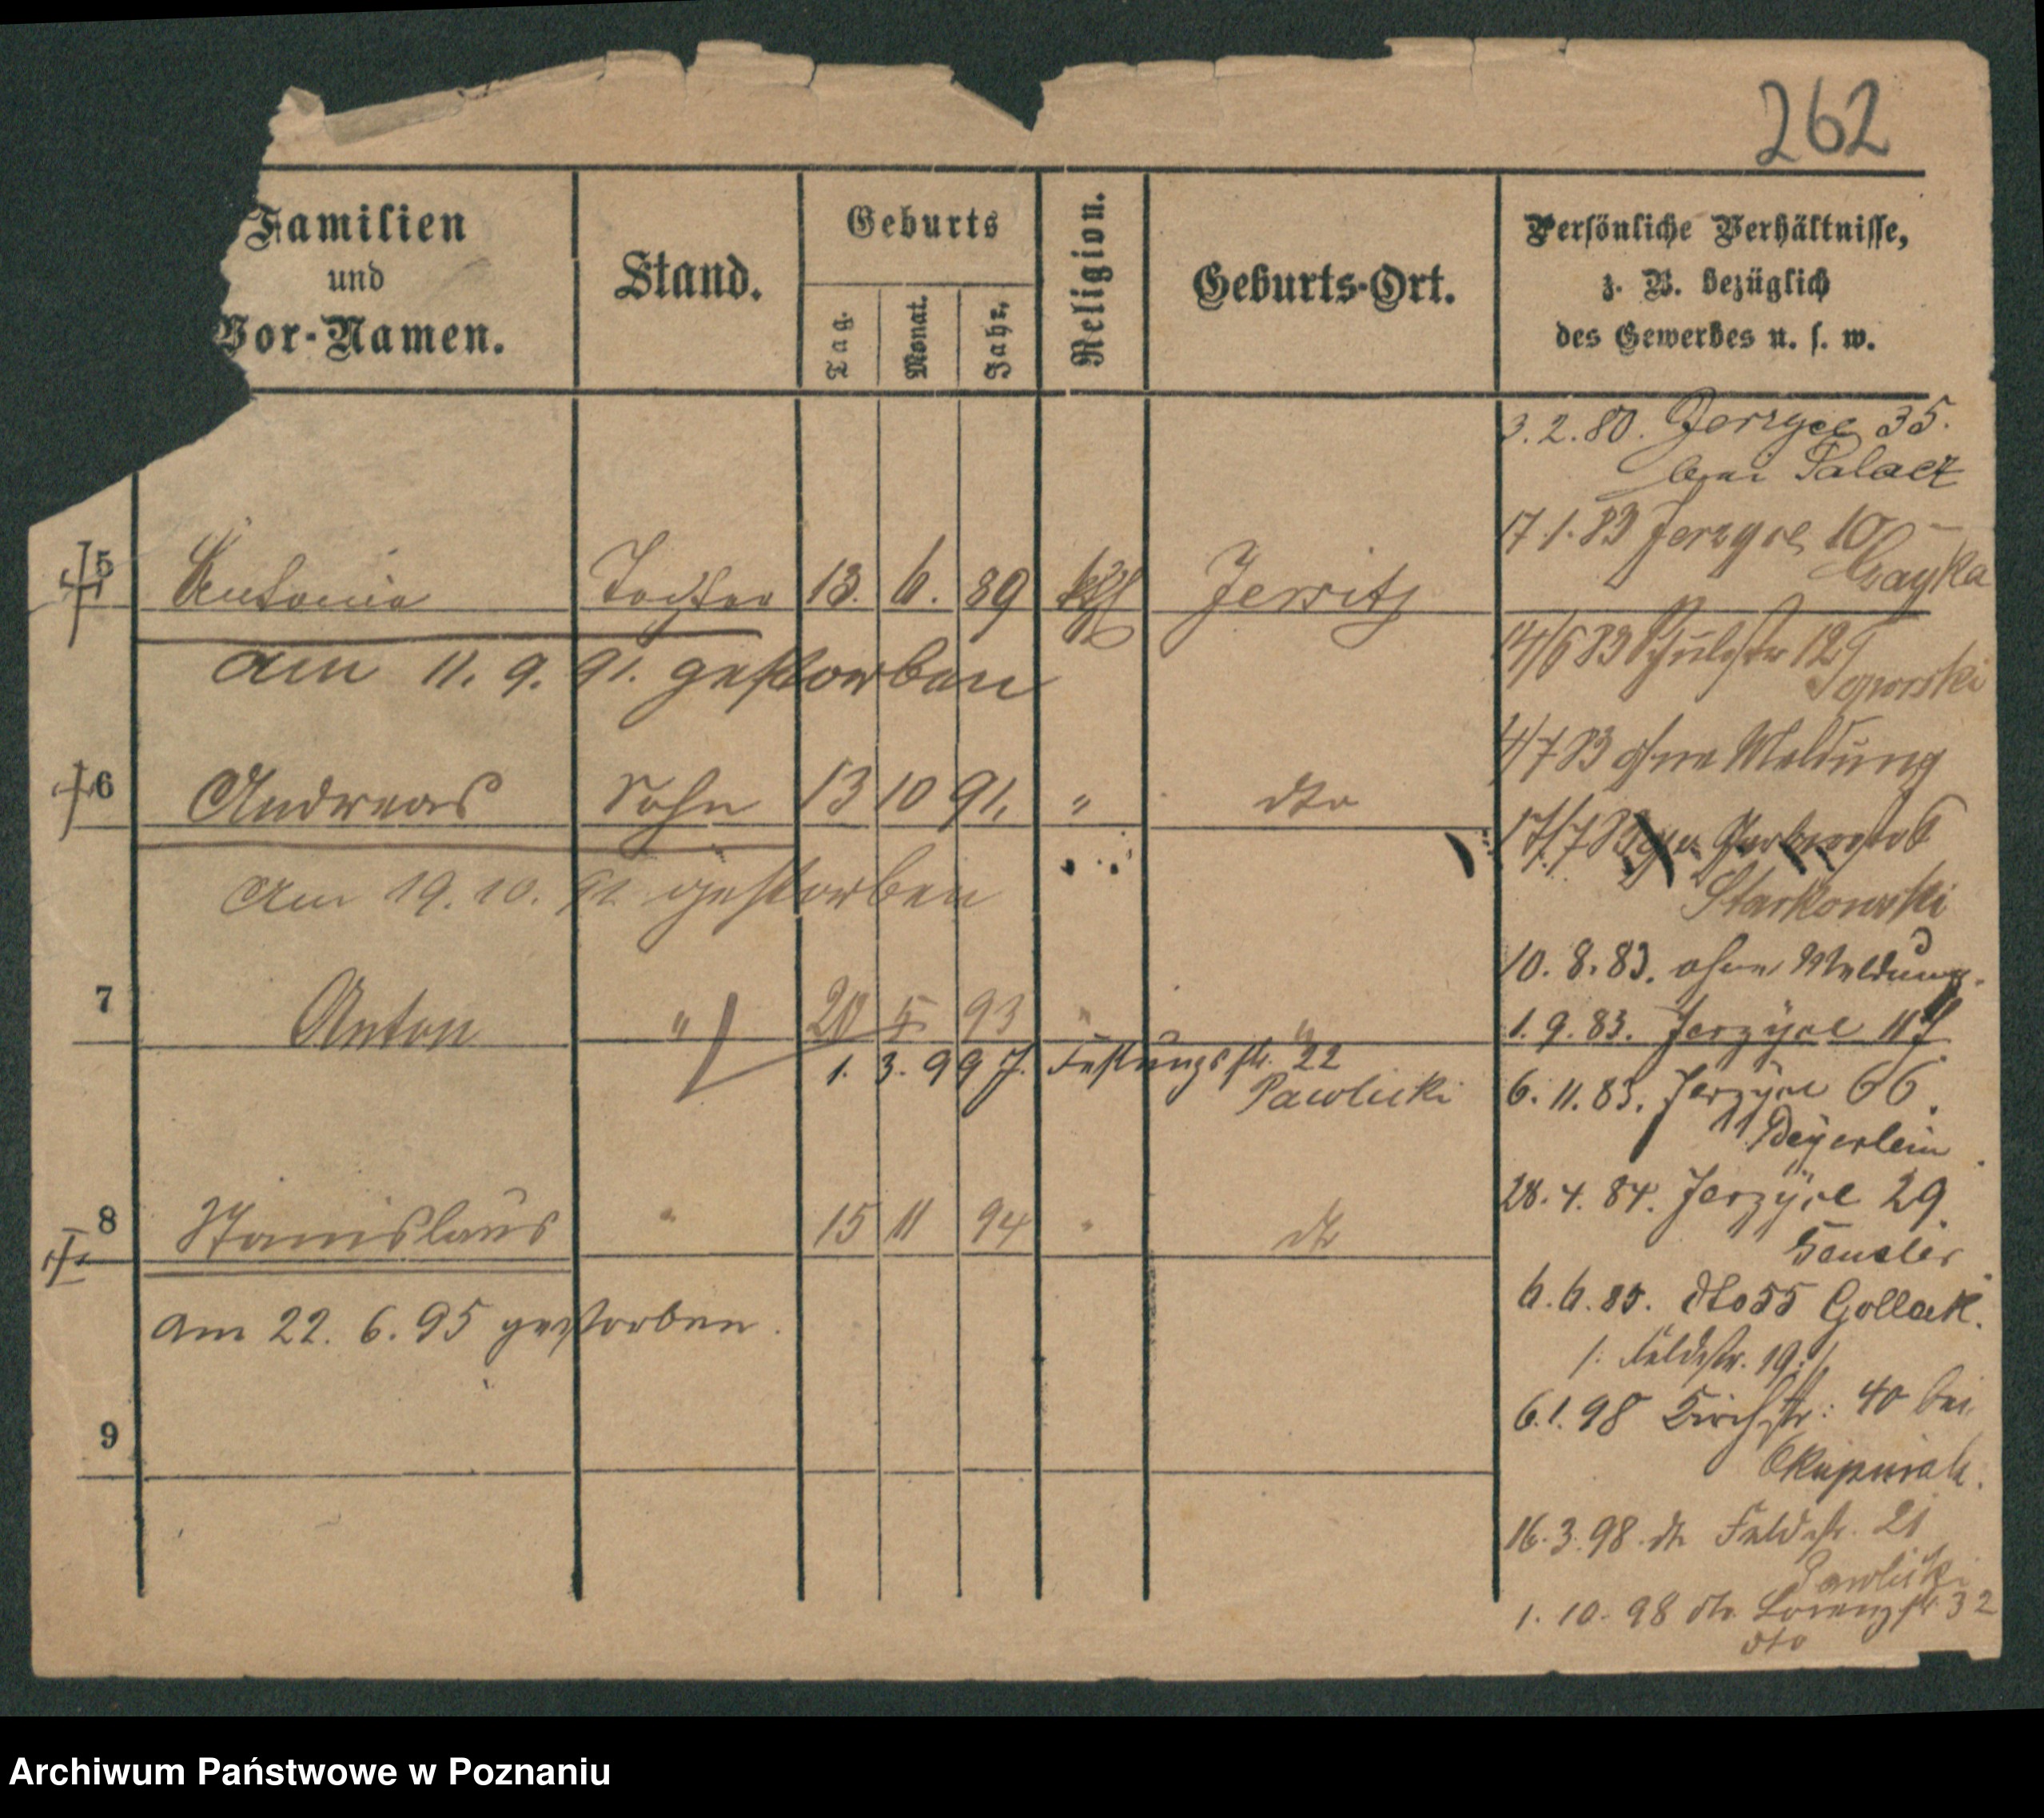 262
Familien
und
Vor-Namen.
Stand.
Geburts
Tag.
Monat.
Jahr.
Religion.
Geburts-Ort.
Persönliche Verhältnisse,
z. B. bezüglich
des Gewerbes u. s. w.
3.2.80. Jerzyce 35.
bei Palacz
17.1.83 Jerzyce 10
Czayka
5 Antonie Tochter 13. 6. 89 kth Jersitz
am 11. 9. 91. gestorben
14/6 83 Schulstr 12
4/7 83 ohne Meldung
6 Andreas Sohn 13 10 91. " dto
am 19. 10. 91 gestorben
17/7 83
Starkowski
10. 8. 83. ohne Meldung.
7 Anton " 20 5 93 " "
1. 9. 83. Jerzyce
1. 3. 99 J. Festungsstr. 22
Pawlicki
6. 11. 83. Jerzyce 66.
Beyerlein
28. 4. 84. Jerzyce 29.
8 Stanislaus " 15 11 94 " dto
am 22. 6. 95 gestorben.
6. 6. 85. dto 55 Gollack.
/: Feldstr. 19 :/
6.1.98 Kirchstr: 40 bei
9
16. 3. 98. dto Feldstr. 21
Pawlicki
1. 10. 98 dto Lorenzstr. 32
dto
Archiwum Państwowe w Poznaniu